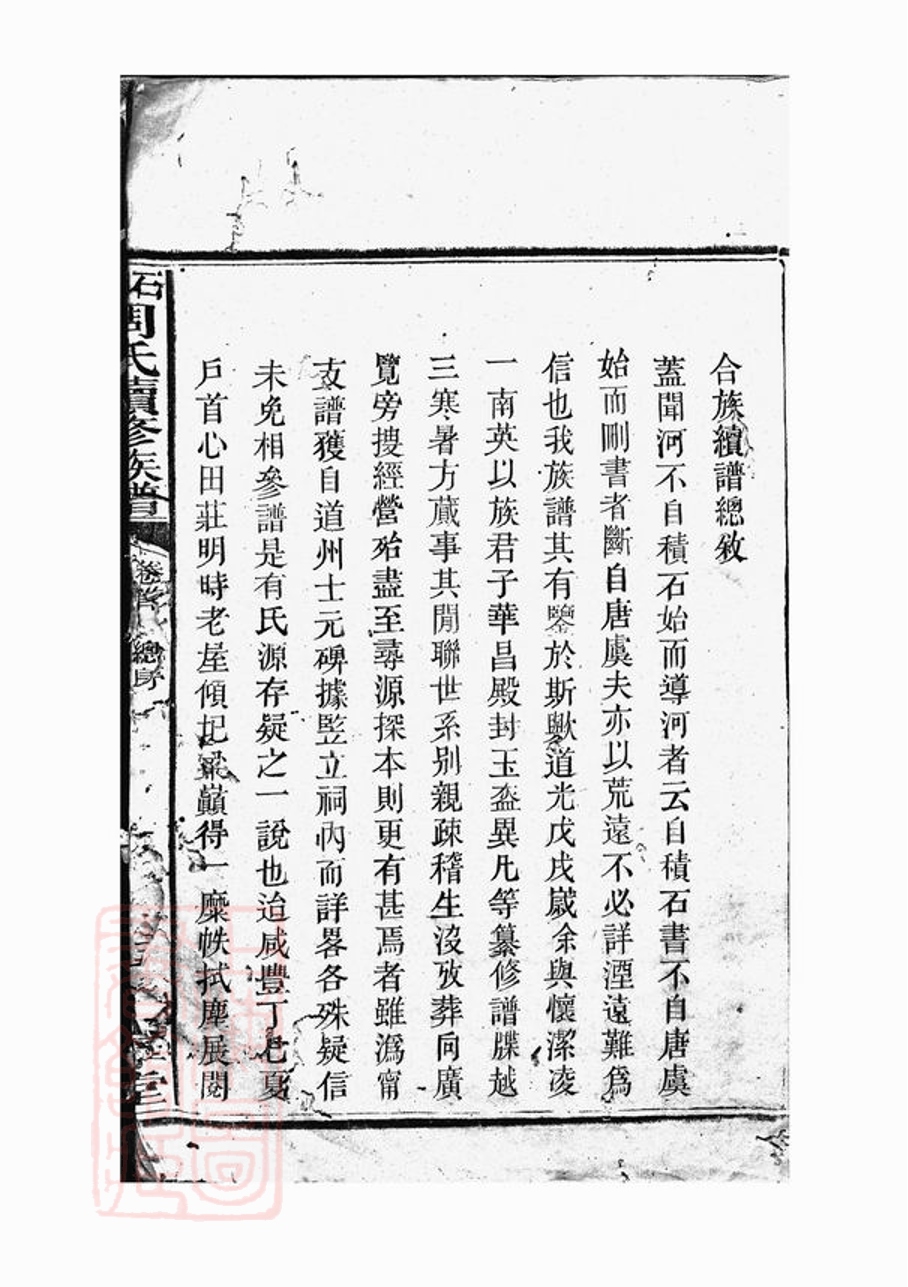 合族續譜總敘
蓋聞河不自積石始而導河者云自積石書不自唐虞
始而刪書者斷自唐虞夫亦以荒遠不必詳湮遠難爲
信也我族譜其有鑒於斯歟道光戊戌歲余與懷潔凌
一南英以族君子華昌殿封玉盃異凡等纂修譜牒越
三寒暑方蕆事其閒聯世系别親疎稽生沒攷葬向廣
覽旁搜經營殆盡至尋源探本則更有甚焉者雖潙甯
支譜獲自道州士元碑據監立祠內而詳畧各殊疑信
未免相參譜是有氏源存疑之一說也迨咸豐丁巳夏
戶首心田莊明時老屋傾圮梁巔得一糜帙拭塵展閱
石周氏續修族譜
卷首 總序
堂